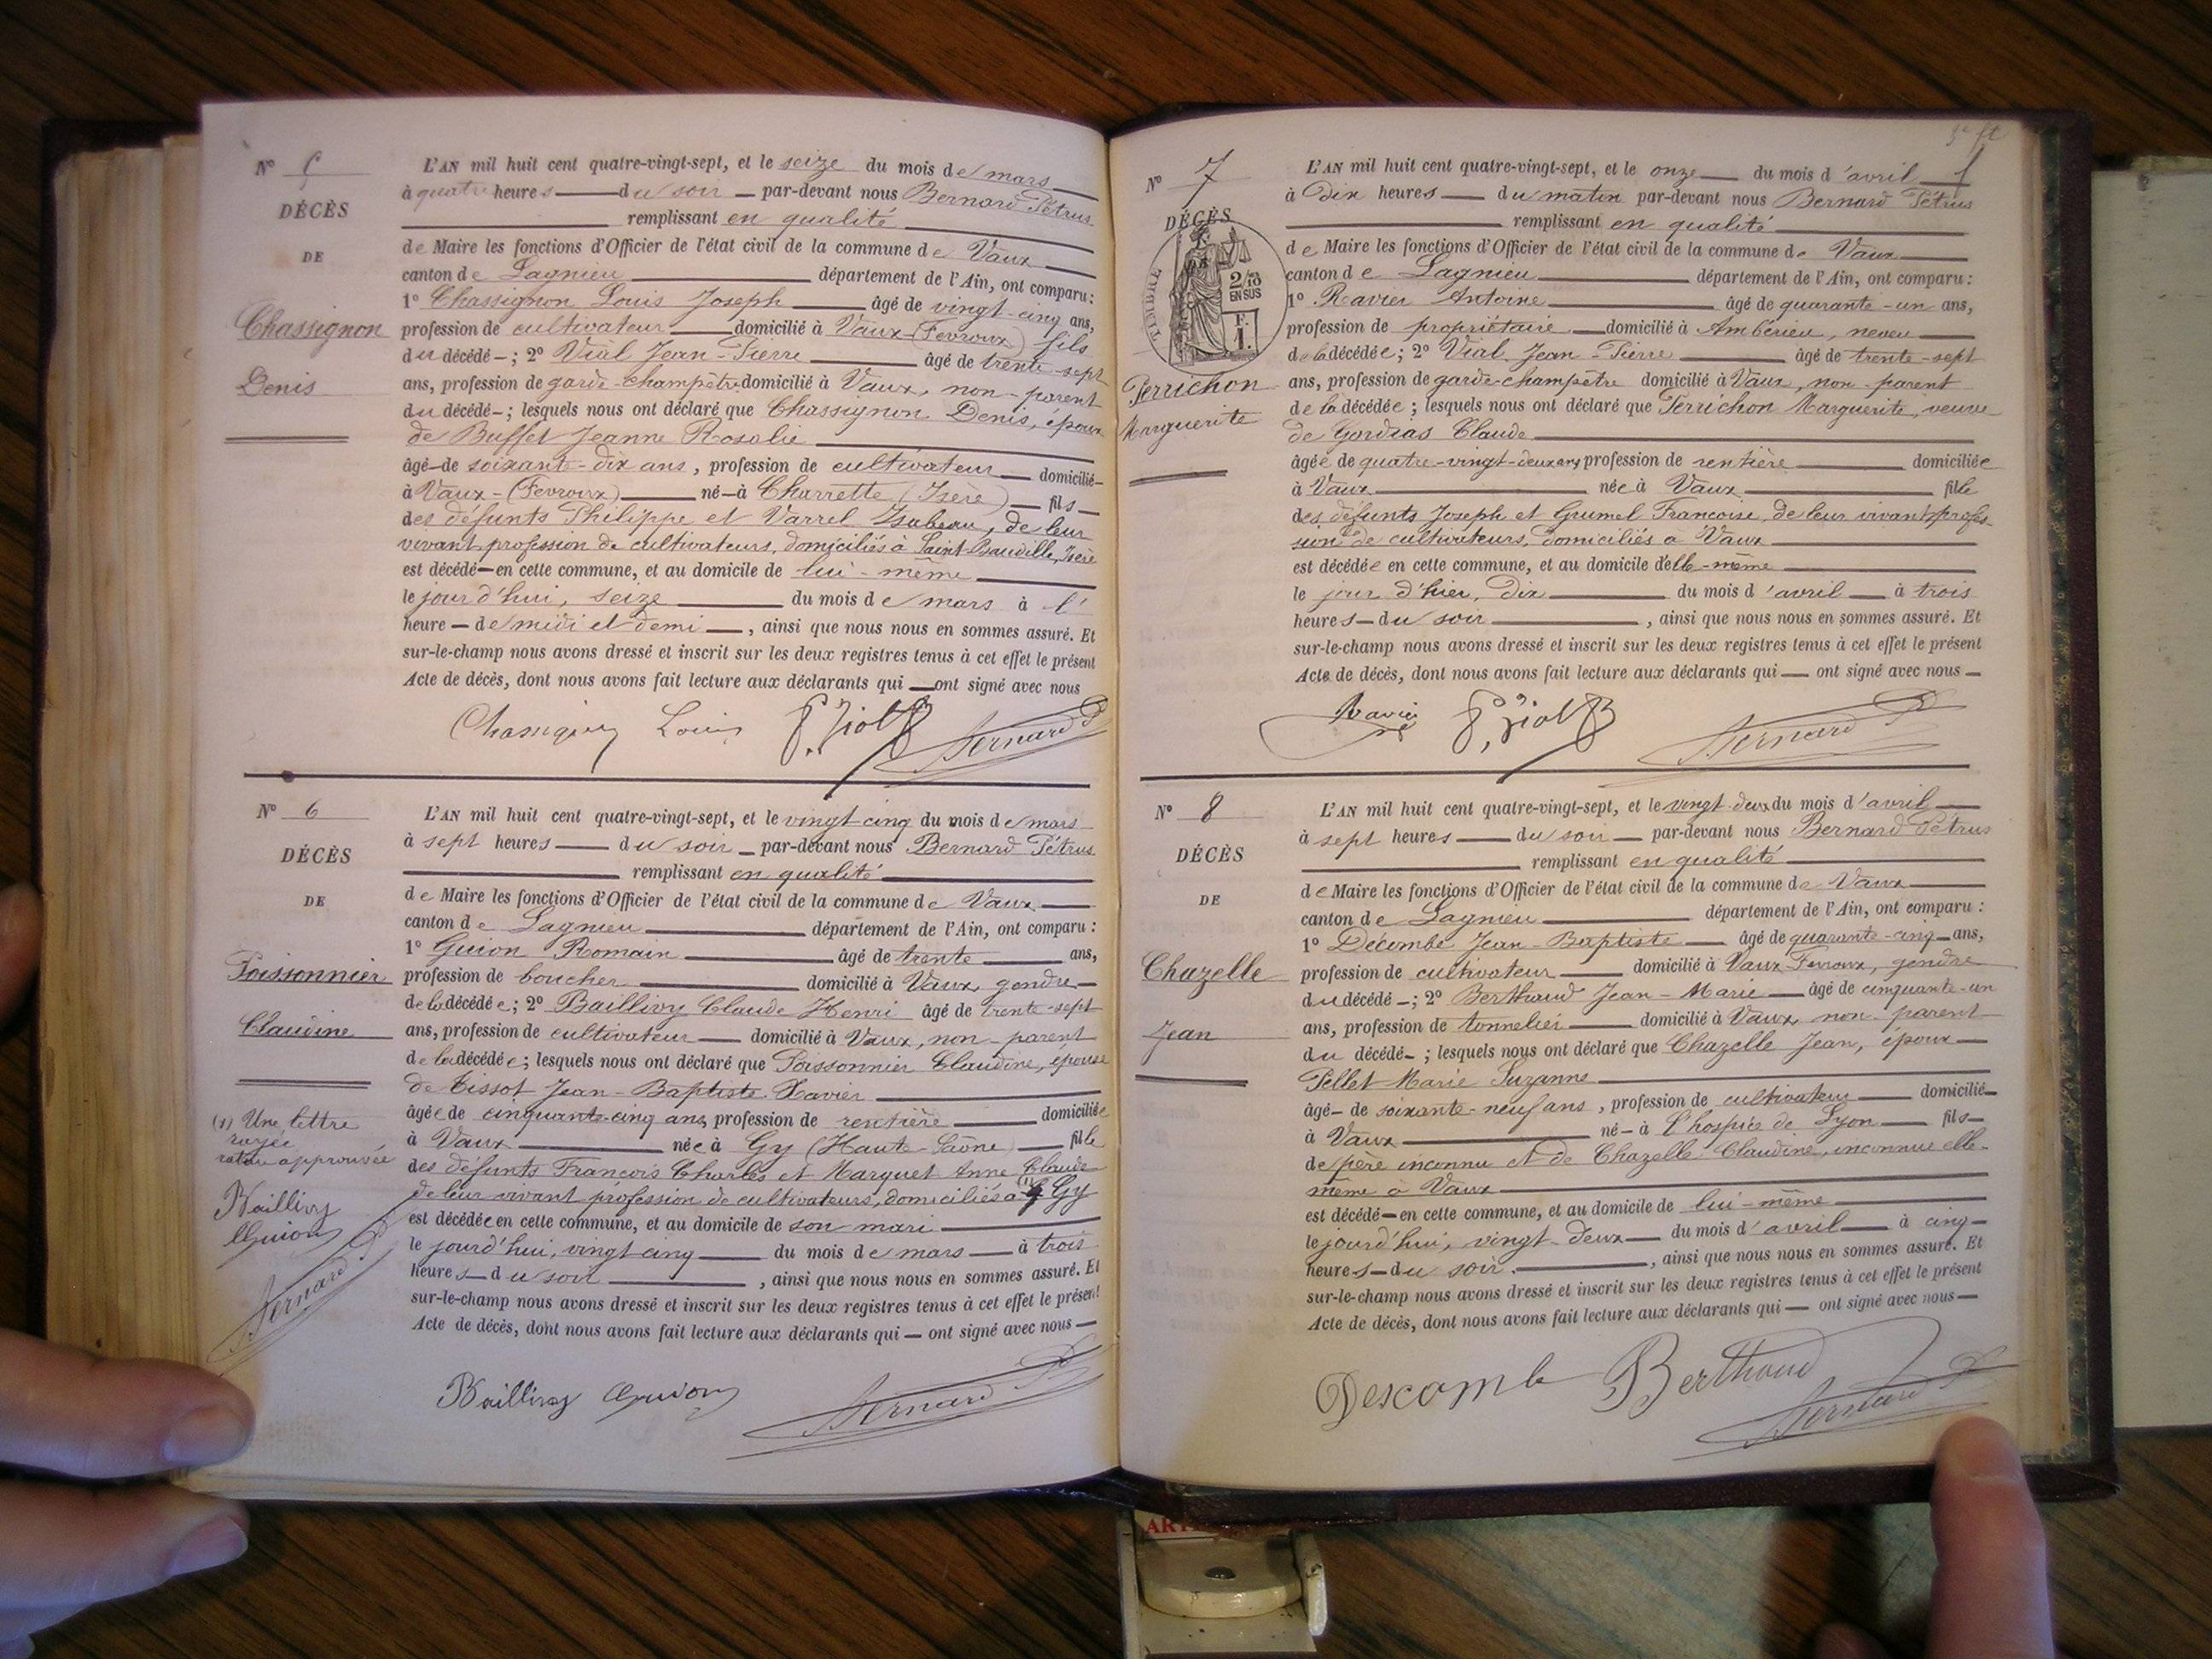 N° 5
DÉCÈS
DE
Chassignon
Denis
L'AN mil huit cent quatre-vingt-sept, et le seize du mois de mars
à quatre heures du soir par-devant nous Bernard Pétrus
remplissant en qualité
de Maire les fonctions d'Officier de l'état civil de la commune de Vaux
canton de Lagnieu département de l'Ain, ont comparu :
1° Chassignon Louis Joseph âgé de vingt-cinq ans,
profession de cultivateur domicilié à Vaux-(Fevroux) fils
du décédé ; 2° Vial Jean-Pierre âgé de trente-sept
ans, profession de garde-champêtre domicilié à Vaux, non-parent
du décédé ; lesquels nous ont déclaré que Chassignon Denis, époux
de Buffet Jeanne Rosalie
âgé de soixante-dix ans, profession de cultivateur domicilié
à Vaux-(Fevroux) né à Charrette (Isère) fils
des défunts Philippe et Varrel Isabeau, de leur
vivant profession de cultivateurs, domiciliés à Saint-Baudille, Isère
est décédé en cette commune, et au domicile de lui-même
le jourd'hui, seize du mois de mars à l'
heure de midi et demi, ainsi que nous nous en sommes assuré. Et
sur-le-champ nous avons dressé et inscrit sur les deux registres tenus à cet effet le présent
Acte de décès, dont nous avons fait lecture aux déclarants qui ont signé avec nous
Louis Bernard
N° 6
DÉCÈS
DE
Poissonnier
Claudine
(1) Une lettre
rayée
approuvée
Baillivy
Guion
Bernard
L'AN mil huit cent quatre-vingt-sept, et le vingt cinq du mois de mars
à sept heures du soir par-devant nous Bernard Pétrus
remplissant en qualité
de Maire les fonctions d'Officier de l'état civil de la commune de Vaux
canton de Lagnieu département de l'Ain, ont comparu :
1° Guion Romain âgé de trente ans,
profession de boucher domicilié à Vaux, gendre
de la décédée ; 2° Baillivy Claude Henri âgé de trente-sept
ans, profession de cultivateur domicilié à Vaux, non-parent
de la décédée ; lesquels nous ont déclaré que Poissonnier Claudine, épouse
de Tissot Jean-Baptiste Xavier
âgée de cinquante-cinq ans, profession de rentière domiciliée
à Vaux née à Gy (Haute-Saône) fille
des défunts François Charles et Marguet Anne Claude
de leur vivant profession de cultivateurs, domiciliés à (1) Gy
est décédée en cette commune, et au domicile de son mari
le jourd'hui, vingt cinq du mois de mars à trois
heures du soir, ainsi que nous nous en sommes assuré. Et
sur-le-champ nous avons dressé et inscrit sur les deux registres tenus à cet effet le présent
Acte de décès, dont nous avons fait lecture aux déclarants qui ont signé avec nous
Baillivy Guion Bernard
N° 7
DÉCÈS
TIMBRE
2/10
EN SUS
F.
1.
Perrichon
Marguerite
L'AN mil huit cent quatre-vingt-sept, et le onze du mois d'avril
à dix heures du matin par-devant nous Bernard Pétrus
remplissant en qualité
de Maire les fonctions d'Officier de l'état civil de la commune de Vaux
canton de Lagnieu département de l'Ain, ont comparu :
1° Ravier Antoine âgé de quarante-un ans,
profession de propriétaire domicilié à Ambérieu, neveu
de la décédée ; 2° Vial Jean-Pierre âgé de trente-sept
ans, profession de garde-champêtre domicilié à Vaux, non-parent
de la décédée ; lesquels nous ont déclaré que Perrichon Marguerite, veuve
de Gordias Claude
âgée de quatre-vingt-deux ans profession de rentière domiciliée
à Vaux née à Vaux fille
des défunts Joseph et Grumel Françoise, de leur vivant profes-
sion de cultivateurs, domiciliés à Vaux
est décédée en cette commune, et au domicile d'elle-même
le jour d'hier, dix du mois d'avril à trois
heures du soir, ainsi que nous nous en sommes assuré. Et
sur-le-champ nous avons dressé et inscrit sur les deux registres tenus à cet effet le présent
Acte de décès, dont nous avons fait lecture aux déclarants qui ont signé avec nous
Ravier Bernard
N° 8
DÉCÈS
DE
Chazelle
Jean
L'AN mil huit cent quatre-vingt-sept, et le vingt-deux du mois d'avril
à sept heures du soir par-devant nous Bernard Pétrus
remplissant en qualité
de Maire les fonctions d'Officier de l'état civil de la commune de Vaux
canton de Lagnieu département de l'Ain, ont comparu :
1° Décombe Jean-Baptiste âgé de quarante-cinq ans,
profession de cultivateur domicilié à Vaux Fevroux, gendre
du décédé ; 2° Berthaud Jean-Marie âgé de cinquante-un
ans, profession de tonnelier domicilié à Vaux, non-parent
du décédé ; lesquels nous ont déclaré que Chazelle Jean, époux
Pellet Marie Suzanne
âgé de soixante-neuf ans, profession de cultivateur domicilié
à Vaux né à l'hospice de Lyon fils
de père inconnu et de Chazelle Claudine, inconnue elle-
même à Vaux
est décédé en cette commune, et au domicile de lui-même
le jourd'hui, vingt-deux du mois d'avril à cinq
heures du soir, ainsi que nous nous en sommes assuré. Et
sur-le-champ nous avons dressé et inscrit sur les deux registres tenus à cet effet le présent
Acte de décès, dont nous avons fait lecture aux déclarants qui ont signé avec nous
Descombe Berthaud
Bernard